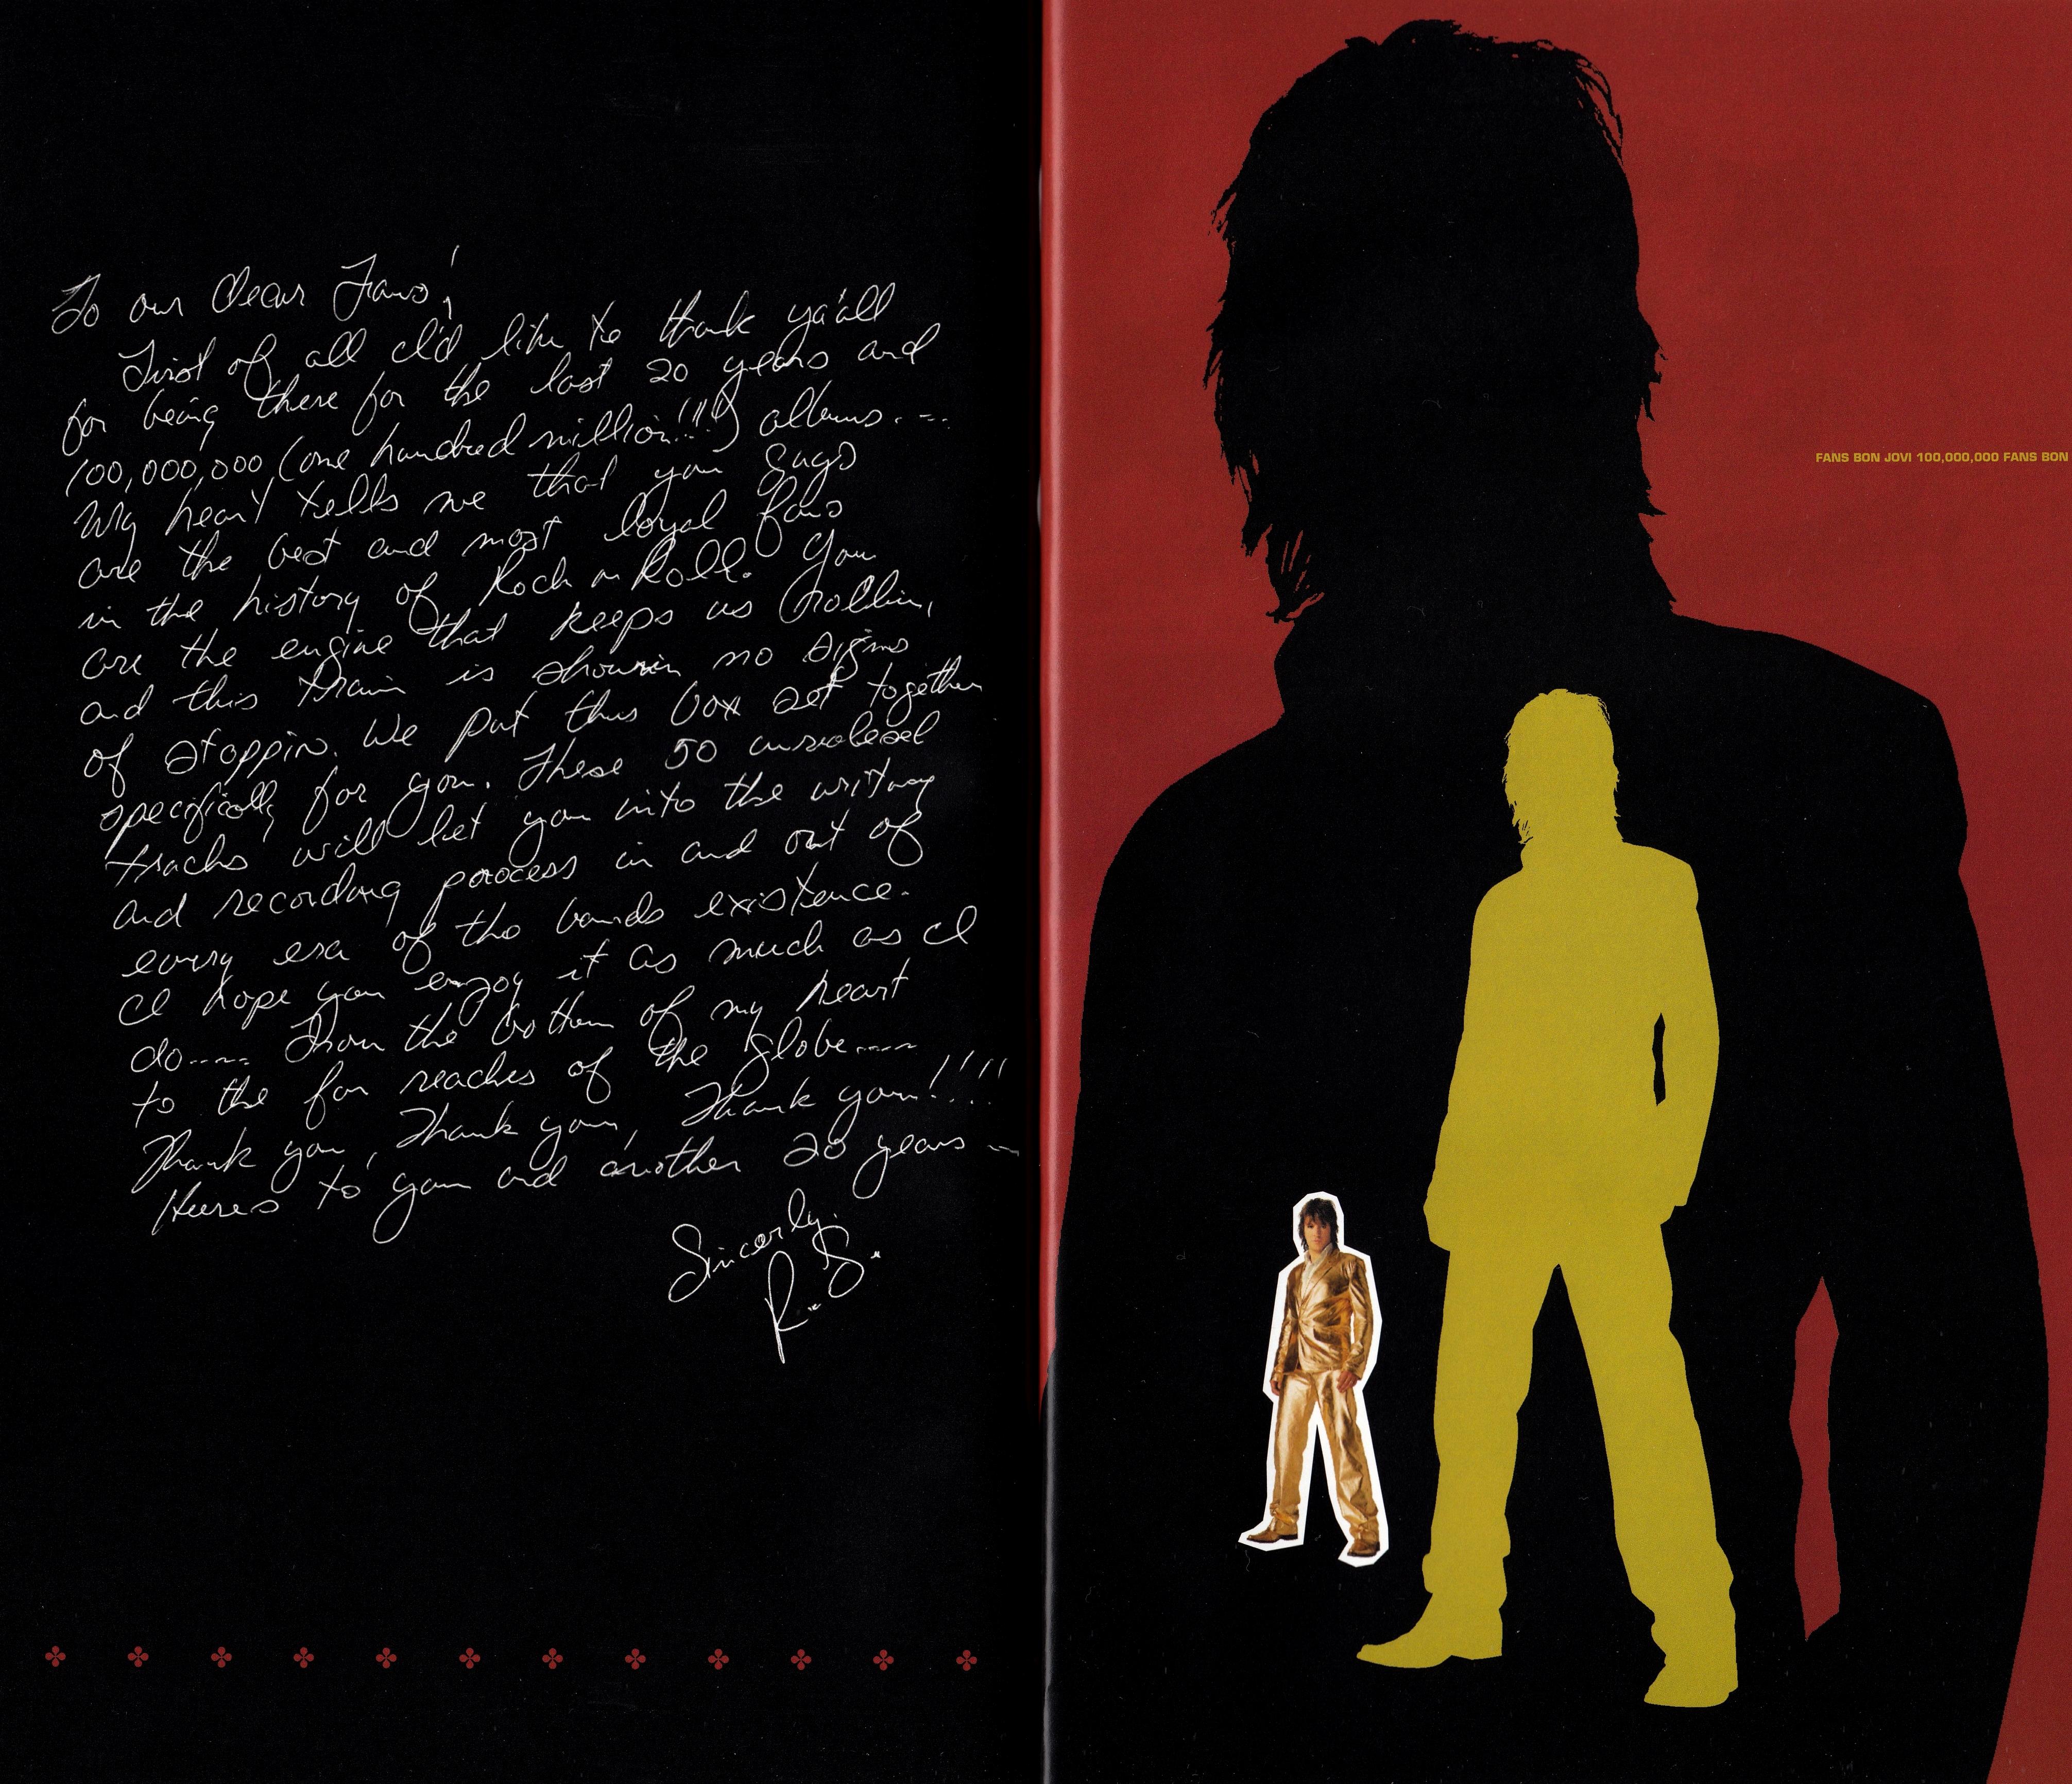 To our Dear Fans!,
First of all I'd like to thank ya'all
for being there for the last 20 years and
100,000,000 (one hundred million!!!!) albums....
My heart tells me that you guys
are the best and most loyal fans
in the history of Rock n Roll. You
are the engine that keeps us Rollin,
and this train is showin no signs
of stoppin. We put this box set together
specifically for you. These 50 unrealesed
tracks will let you into the writing
and recording process in and out of
every era of the bands existence.
I hope you enjoy it as much as I
do..... From the bottom of my heart
to the far reaches of the globe.....
Thank you, Thank you, Thank you!!!!
Heres to you and another 20 years –
Sincerly,
R. S.
FANS BON JOVI 100,000,000 FANS BON